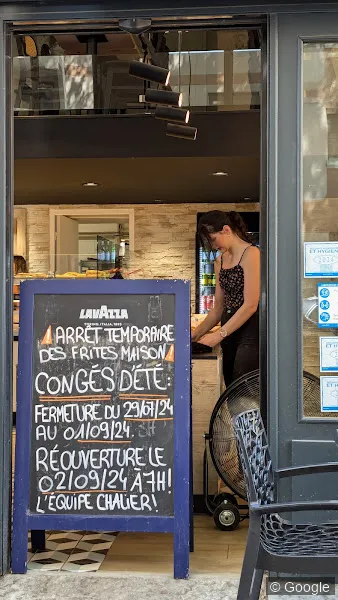 LAVAZZA
TORINO, ITALIA, 1895
ARRÊT TEMPORAIRE
DES FRITES MAISON
CONGÉS D'ÉTÉ:
FERMETURE DU 29/07/24
AU 01/09/24.
RÉOUVERTURE LE
02/09/24 À 7H!
L'ÉQUIPE CHALIER!
© Google